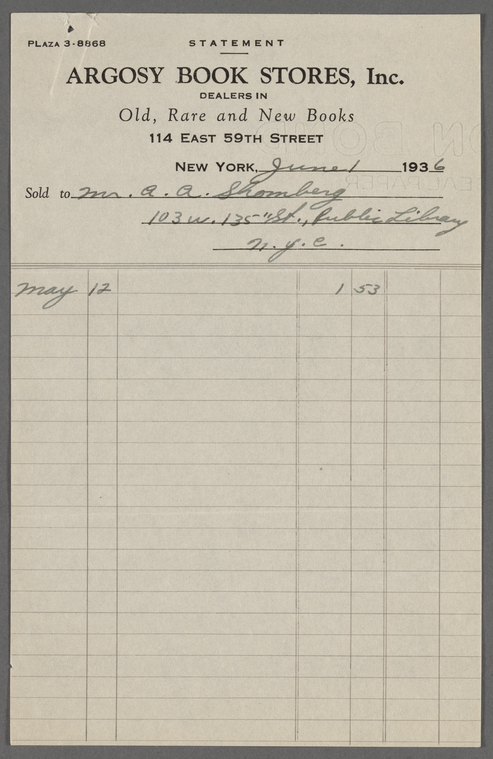 PLAZA 3-8868 STATEMENT
ARGOSY BOOK STORES, Inc.
DEALERS IN
Old, Rare and New Books
114 EAST 59TH STREET
NEW YORK, June 1 1936
Sold to Mr. A. A. Shomberg
103 W. 135" St., Public Library
N.Y.C.
May 12 1 53